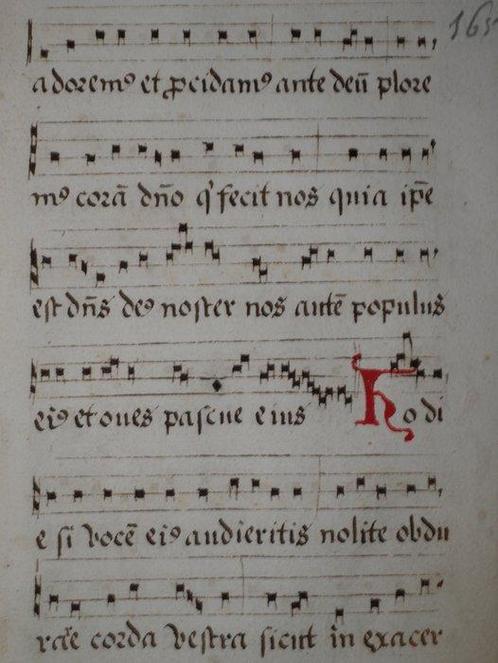 165
adorem⁹ et ꝓcidam⁹ ante deū plore
m⁹ corā dño q' fecit nos quia ip̄e
est dn̄s de⁹ noster nos autē populus
ei⁹ et oues pascue eius Hodi
e si vocē ei⁹ audieritis nolite obdu
rare corda vestra sicut in exacer